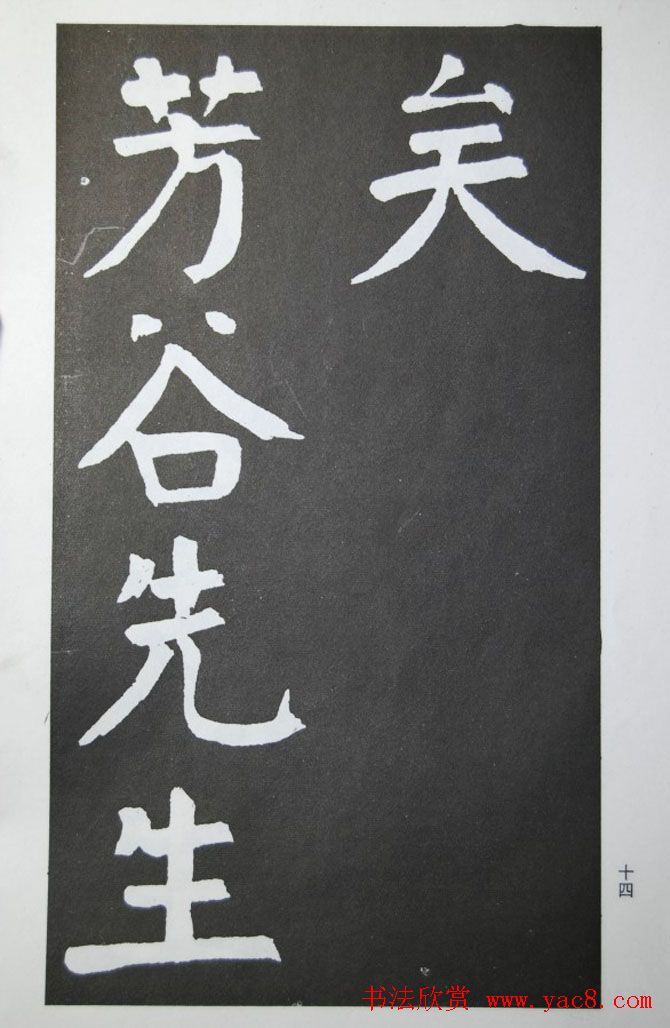 矣
芳谷先生
十四
书法欣赏 www.yac8.com